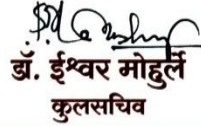 डॉ. ईश्वर मोहुर्ले
कुलसचिव